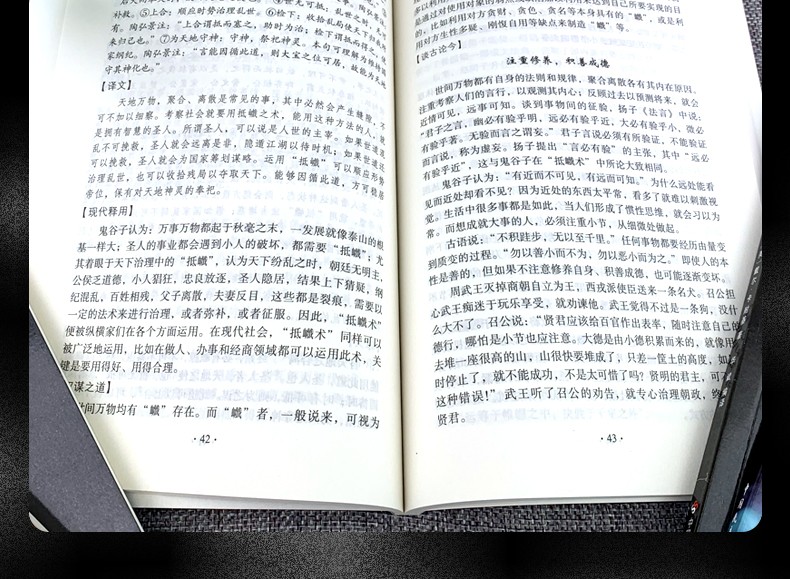 补救。⑤上合：顺应时势治理乱世。⑥检下：收拾乱局使天下归
来归己也。”⑦为天地守神：守神，祭祀神灵。本句可理解为维持国
家纲纪。陶弘景注：“言能因循此道，则大宝之位可居，故能为天地
守其神化也。”
【译文】
天地万物，聚合、离散是常见的事，其中必然会产生缝隙，不
可不加以细察。考察社会就要用抵巇之术，能用这种方法的人，就
是拥有智慧的圣人。所谓圣人，可以说是人世的主宰。如果世道混
乱不可挽救，圣人就会远离是非，隐遁江湖以待时机；如果世道还
可以挽救，圣人就会为国家筹划谋略。运用“抵巇”可以顺应形势
治理乱世，也可以收拾残局以夺取天下。能够因循此道，方可稳居
帝位，保有对天地神灵的奉祀。
【现代释用】
鬼谷子认为：万事万物都起于秋毫之末，一发展就像泰山的根
基一样大；圣人的事业都会遇到小人的破坏，都需要“抵巇”；尤
其着眼于天下治理中的“抵巇”，认为天下纷乱之时，朝廷无明主，
公侯乏道德，小人猖狂，忠良放逐，圣人隐居，结果上下猜疑，纲
纪混乱，百姓相残，父子离散，夫妻反目，这些都是裂痕，需要以
一定的法术来进行治理，或者弥补，或者征服。因此，“抵巇术”
便被纵横家们在各个方面运用。在现代社会，“抵巇术”同样可以
被广泛地运用，比如在做人、办事和经商领域都可以运用此术，关
键是要用得好、用得合理。
谋之道】
世间万物均有“巇”存在。而“巇”者，一般说来，可视为
·42·
是通过对使用对象的弱点
的。比如利用对方贪财、贪色、贪名等本身具有的“巇”，或是利
用对方生性多疑、刚愎自用等缺点来制造“巇”等。
【谈古论今】
注重修养，积善成德
世间万物都有自身的法则和规律，聚合离散各有其内在原因，
注重考察人们的言行，以观测其内心；反顾过去以预测将来，就会
近情可见，远事可知。谈到事物间的征验，扬子《法言》中说：
“君子之言，幽必有验乎明，远必有验乎近，大必有验乎小，微必
有验乎著。无验而言之谓妄。”君子言说必须有所验证，不能验证
而言说，称为虚妄。扬子提出“言必有验”的主张，其中“远必
有验乎近”，这与鬼谷子在“抵巇术”中所论大致相同。
鬼谷子认为：“有近而不可见，有远而可知。”为什么远处能看
见而近处却看不见？因为近处的东西太平常，看多了就难以刺激视
觉。生活中很多事都是如此，当人们形成了惯性思维，就会习以为
常。而想成就大事的人，必须注重小节，从细微处做起。
古语说：“不积跬步，无以至千里。”任何事物都要经历由量变
到质变的过程。“勿以善小而不为，勿以恶小而为之。”即使人的本
性是善的，但如果不注意修养自身、积善成德，也可能逐渐变坏。
周武王灭掉商朝自立为王，西戎派使臣送来一条名犬。召公担
心武王痴迷于玩乐享受，就劝谏他。武王觉得不过是一条狗，没什
么大不了。召公说：“贤君应该给百官作出表率，随时注意自己的
德行，哪怕是小节也应注意。大德是由小德积累而来的，就像用
去堆一座很高的山，山很快要堆成了，只差一筐土的高度，如
时停止了，就不能成功，不是太可惜了吗？贤明的君主，可不
这种错误！”武王听了召公的劝告，就专心治理朝政，终
贤君。
·43·